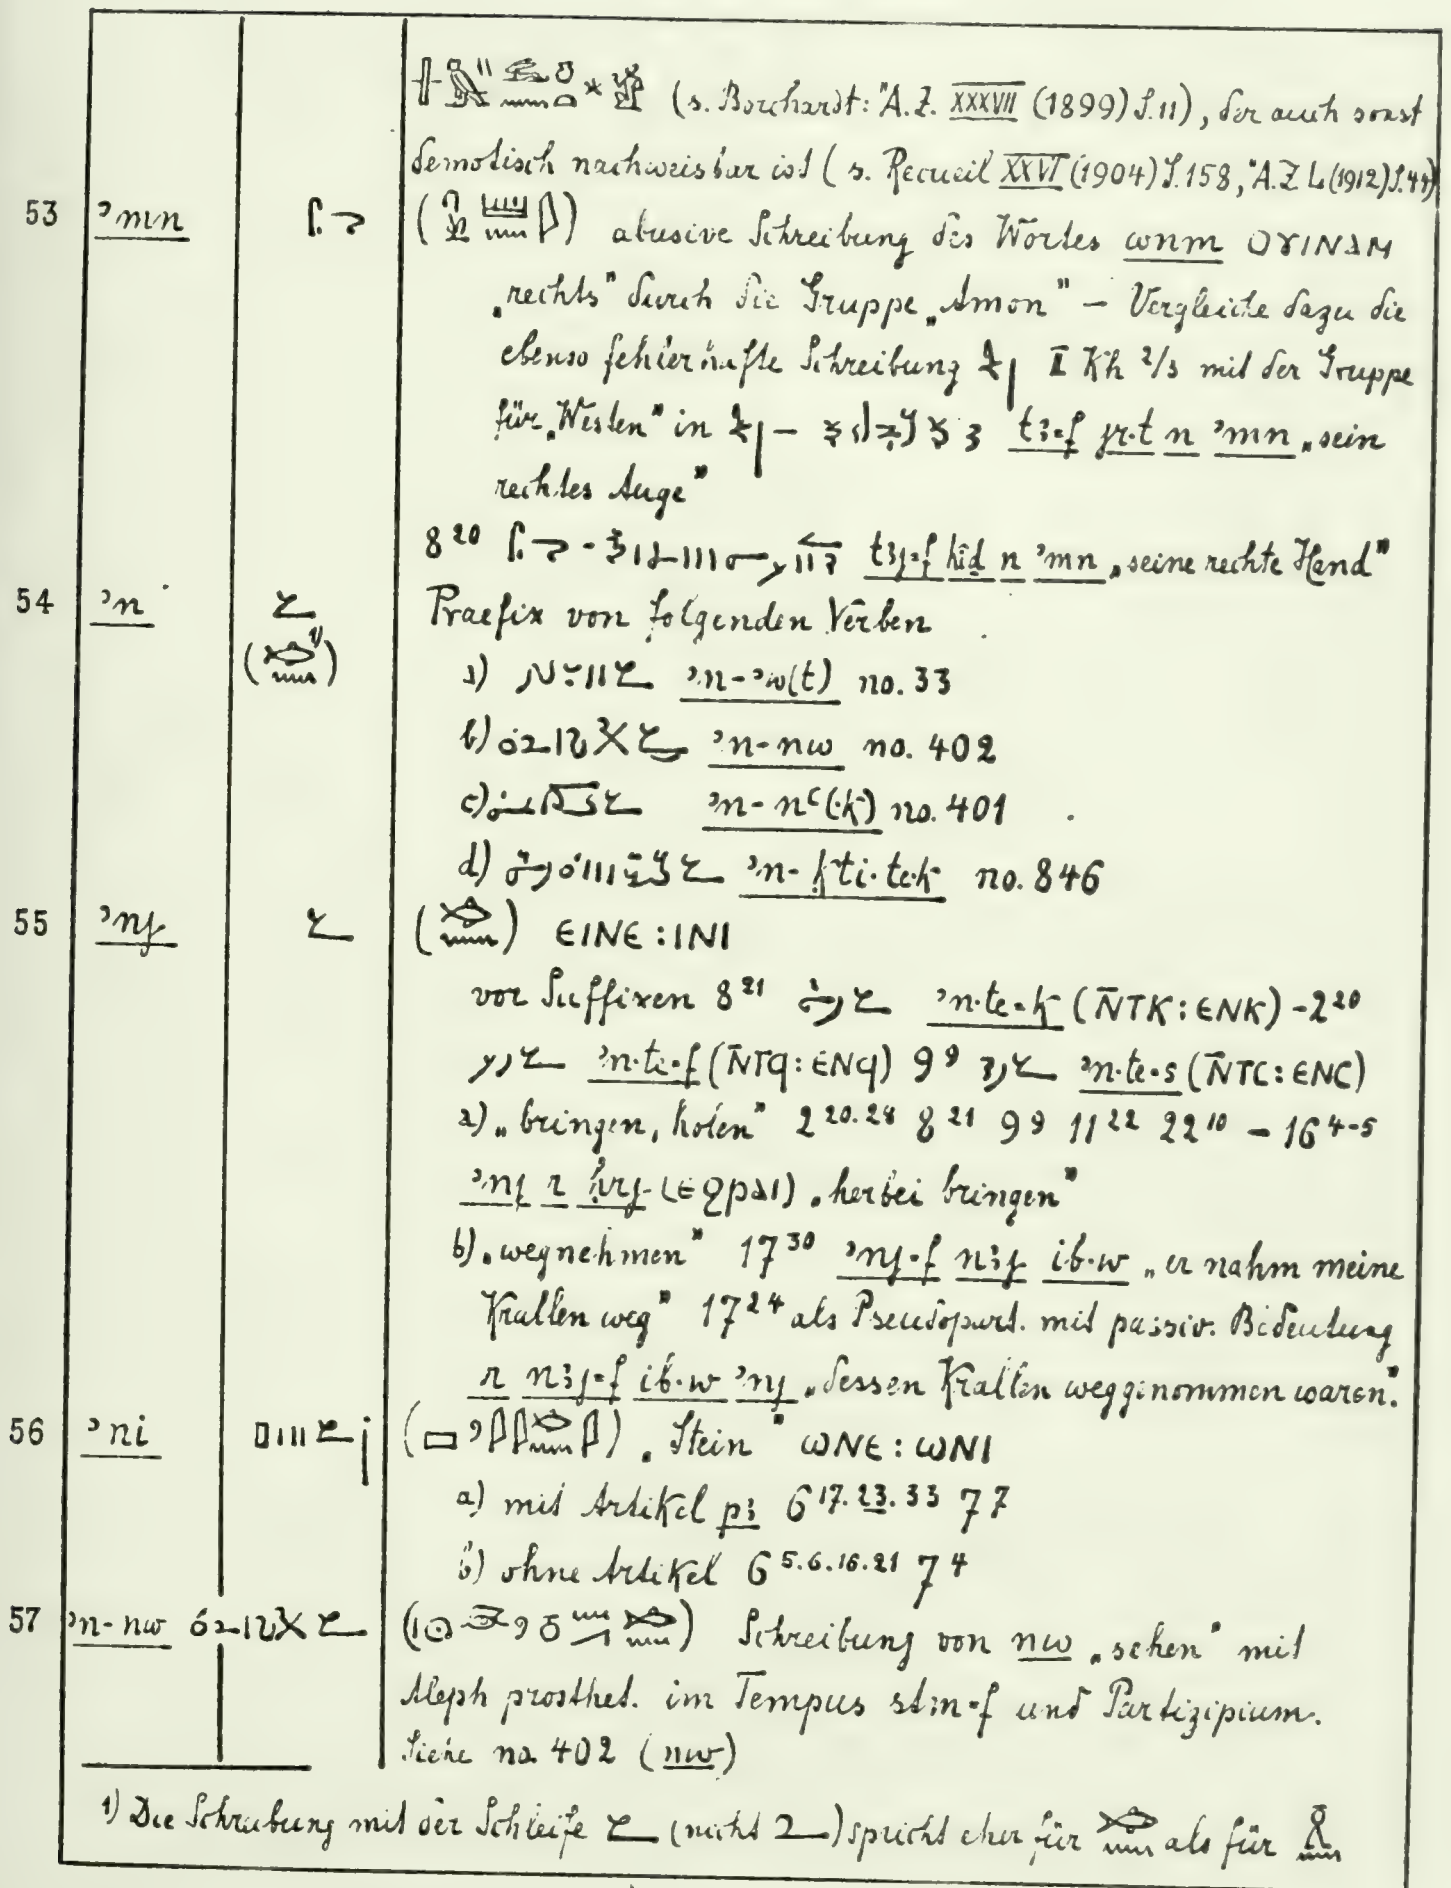 (s. Borchardt: ÄZ. XXXVII (1899) S.11), der auch sonst
demotisch nachweisbar ist (s. Recueil XXVI (1904) S.158, ÄZ L (1912) S.44)
53 ꜣmn ( ) abusive Schreibung des Wortes wnm ΟΥΙΝΑΜ
„rechts" durch die Gruppe „Amon" – Vergleiche dazu die
ebenso fehlerhafte Schreibung II Kh 2/3 mit der Gruppe
für „Westen" in tꜣ=f jr·t n ꜣmn „sein
rechtes Auge"
8 20 tꜣj=f hid n ꜣmn „seine rechte Hand"
54 ꜣn Praefix von folgenden Verben
( 1) )
a) ꜣn-ꜣw(t) no. 33
b) ꜣn-nw no. 402
c) ꜣn-nꜥ(·k) no. 401
d) ꜣn-kti·te·k no. 846
55 ꜣnj ( ) ЄΙΝЄ : ΙΝΙ
vor Suffixen 8 21 ꜣn·te=k (N̄TK : ЄNK) – 2 20
ꜣn·te=f (N̄Tϥ : ЄNϥ) 9 9 ꜣn·te=s (N̄TC : ЄNC)
a) „bringen, holen" 2 20.28 8 21 9 9 11 22 22 10 – 16 4-5
ꜣnj r ḥrj (ЄϨΡΑΙ) „herbei bringen"
b) „wegnehmen" 17 30 ꜣnj=f nꜣj ib·w „er nahm meine
Krallen weg" 17 24 als Pseudopart. mit passiv. Bedeutung
r nꜣj=f ib·w ꜣnj „dessen Krallen weggenommen waren".
56 ꜣni ( ) „Stein" ⲰΝЄ : ⲰΝΙ
a) mit Artikel pꜣ 6 17.23.33 7 7
b) ohne Artikel 6 5.6.16.21 7 4
57 ꜣn-nw ( ) Schreibung von nw „sehen" mit
Aleph prosthet. im Tempus stm=f und Partizipium.
Siehe no. 402 (nw)
1) Die Schreibung mit der Schleife (nicht ) spricht eher für als für